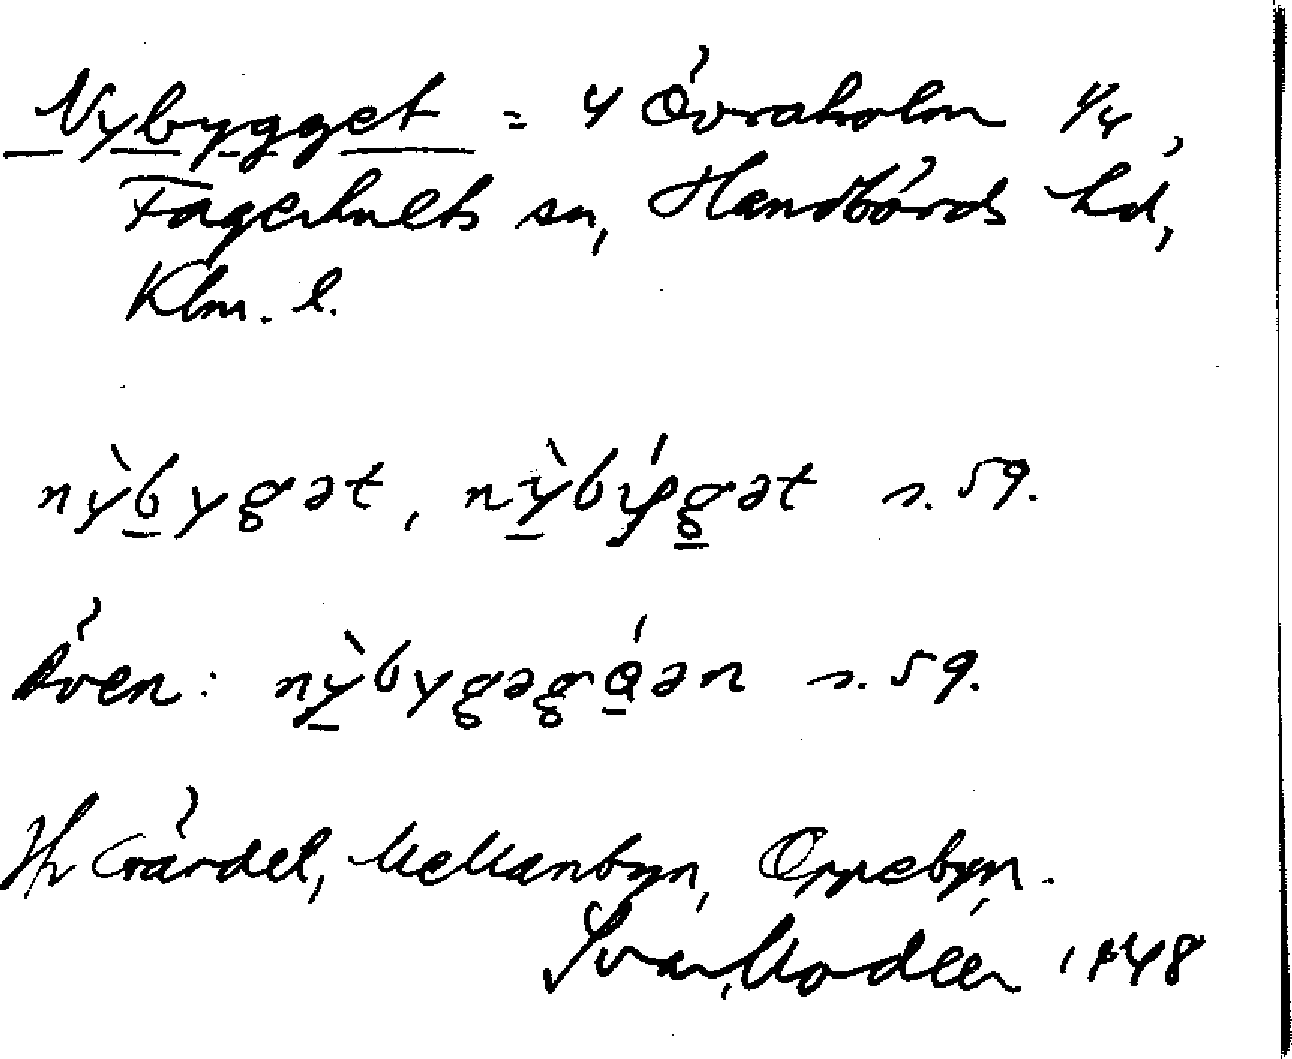 Nybygget = 4 Övraholm 1/4,
Fagerhults sn, Handbörds hd,
Klm. l.
nỳbygət, nỳbýgət s. 59.
Även: nỳbygəgǿən s. 59.
Hj Gärdel, Mellanbyn, Oppebyn.
Ivar Modéer 1948